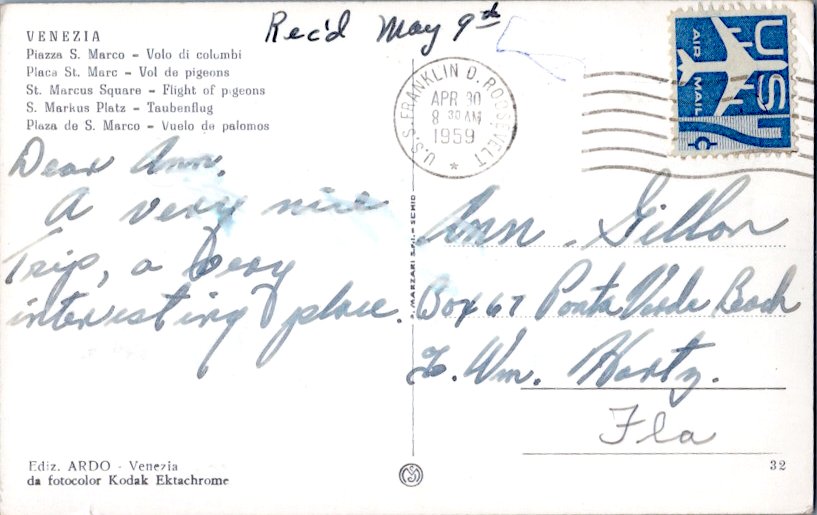 Rec'd May 9th
VENEZIA
Piazza S. Marco - Volo di colombi
Place St. Marc - Vol de pigeons
St. Marcus Square - Flight of pigeons
S. Markus Platz - Taubenflug
Plaza de S. Marco - Vuelo de palomos
U.S.S. FRANKLIN D. ROOSEVELT
APR 30
8 30 AM
1959
US
AIR MAIL
7¢
Dear Ann,
A very nice
Trip, a Very
interesting place.
P. MARZARI S.P.A. - SCHIO
Ann Gillon
Box 67 Ponta Verde Beach
% Wm. Hartz.
Fla
Ediz. ARDO - Venezia
da fotocolor Kodak Ektachrome
32